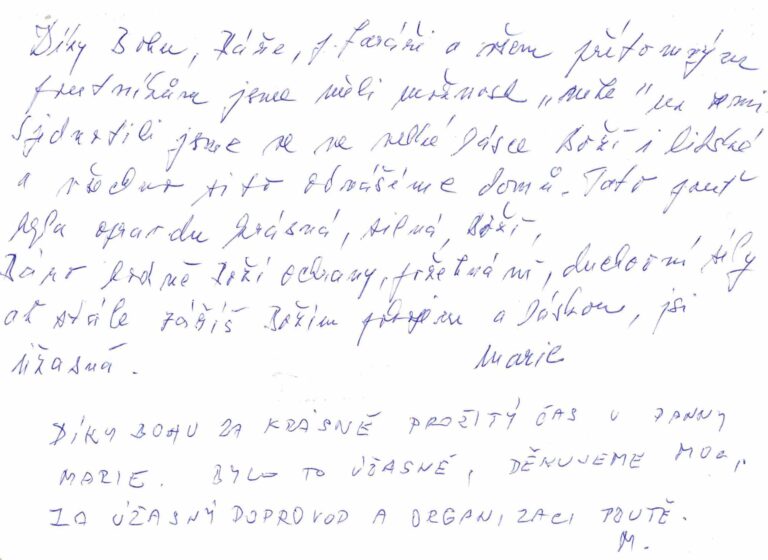 Díky Bohu, Báře, p. faráři a všem přítomným
poutníkům jsme měli možnost
Sjednotili jsme se ve velké lásce Boží i lidské
a všechno si to odnášíme domů. Tato pouť
byla opravdu krásná, silná, Boží.
Báro hodně Boží ochrany, požehnání, duchovní síly
ať stále záříš Božím pokojem a láskou, jsi
úžasná. Marie
DÍKY BOHU ZA KRÁSNĚ PROŽITÝ ČAS U PANNY
MARIE. BYLO TO ÚŽASNÉ, DĚKUJEME MOC,
ZA ÚŽASNÝ DOPROVOD A ORGANIZACI POUTĚ.
M.